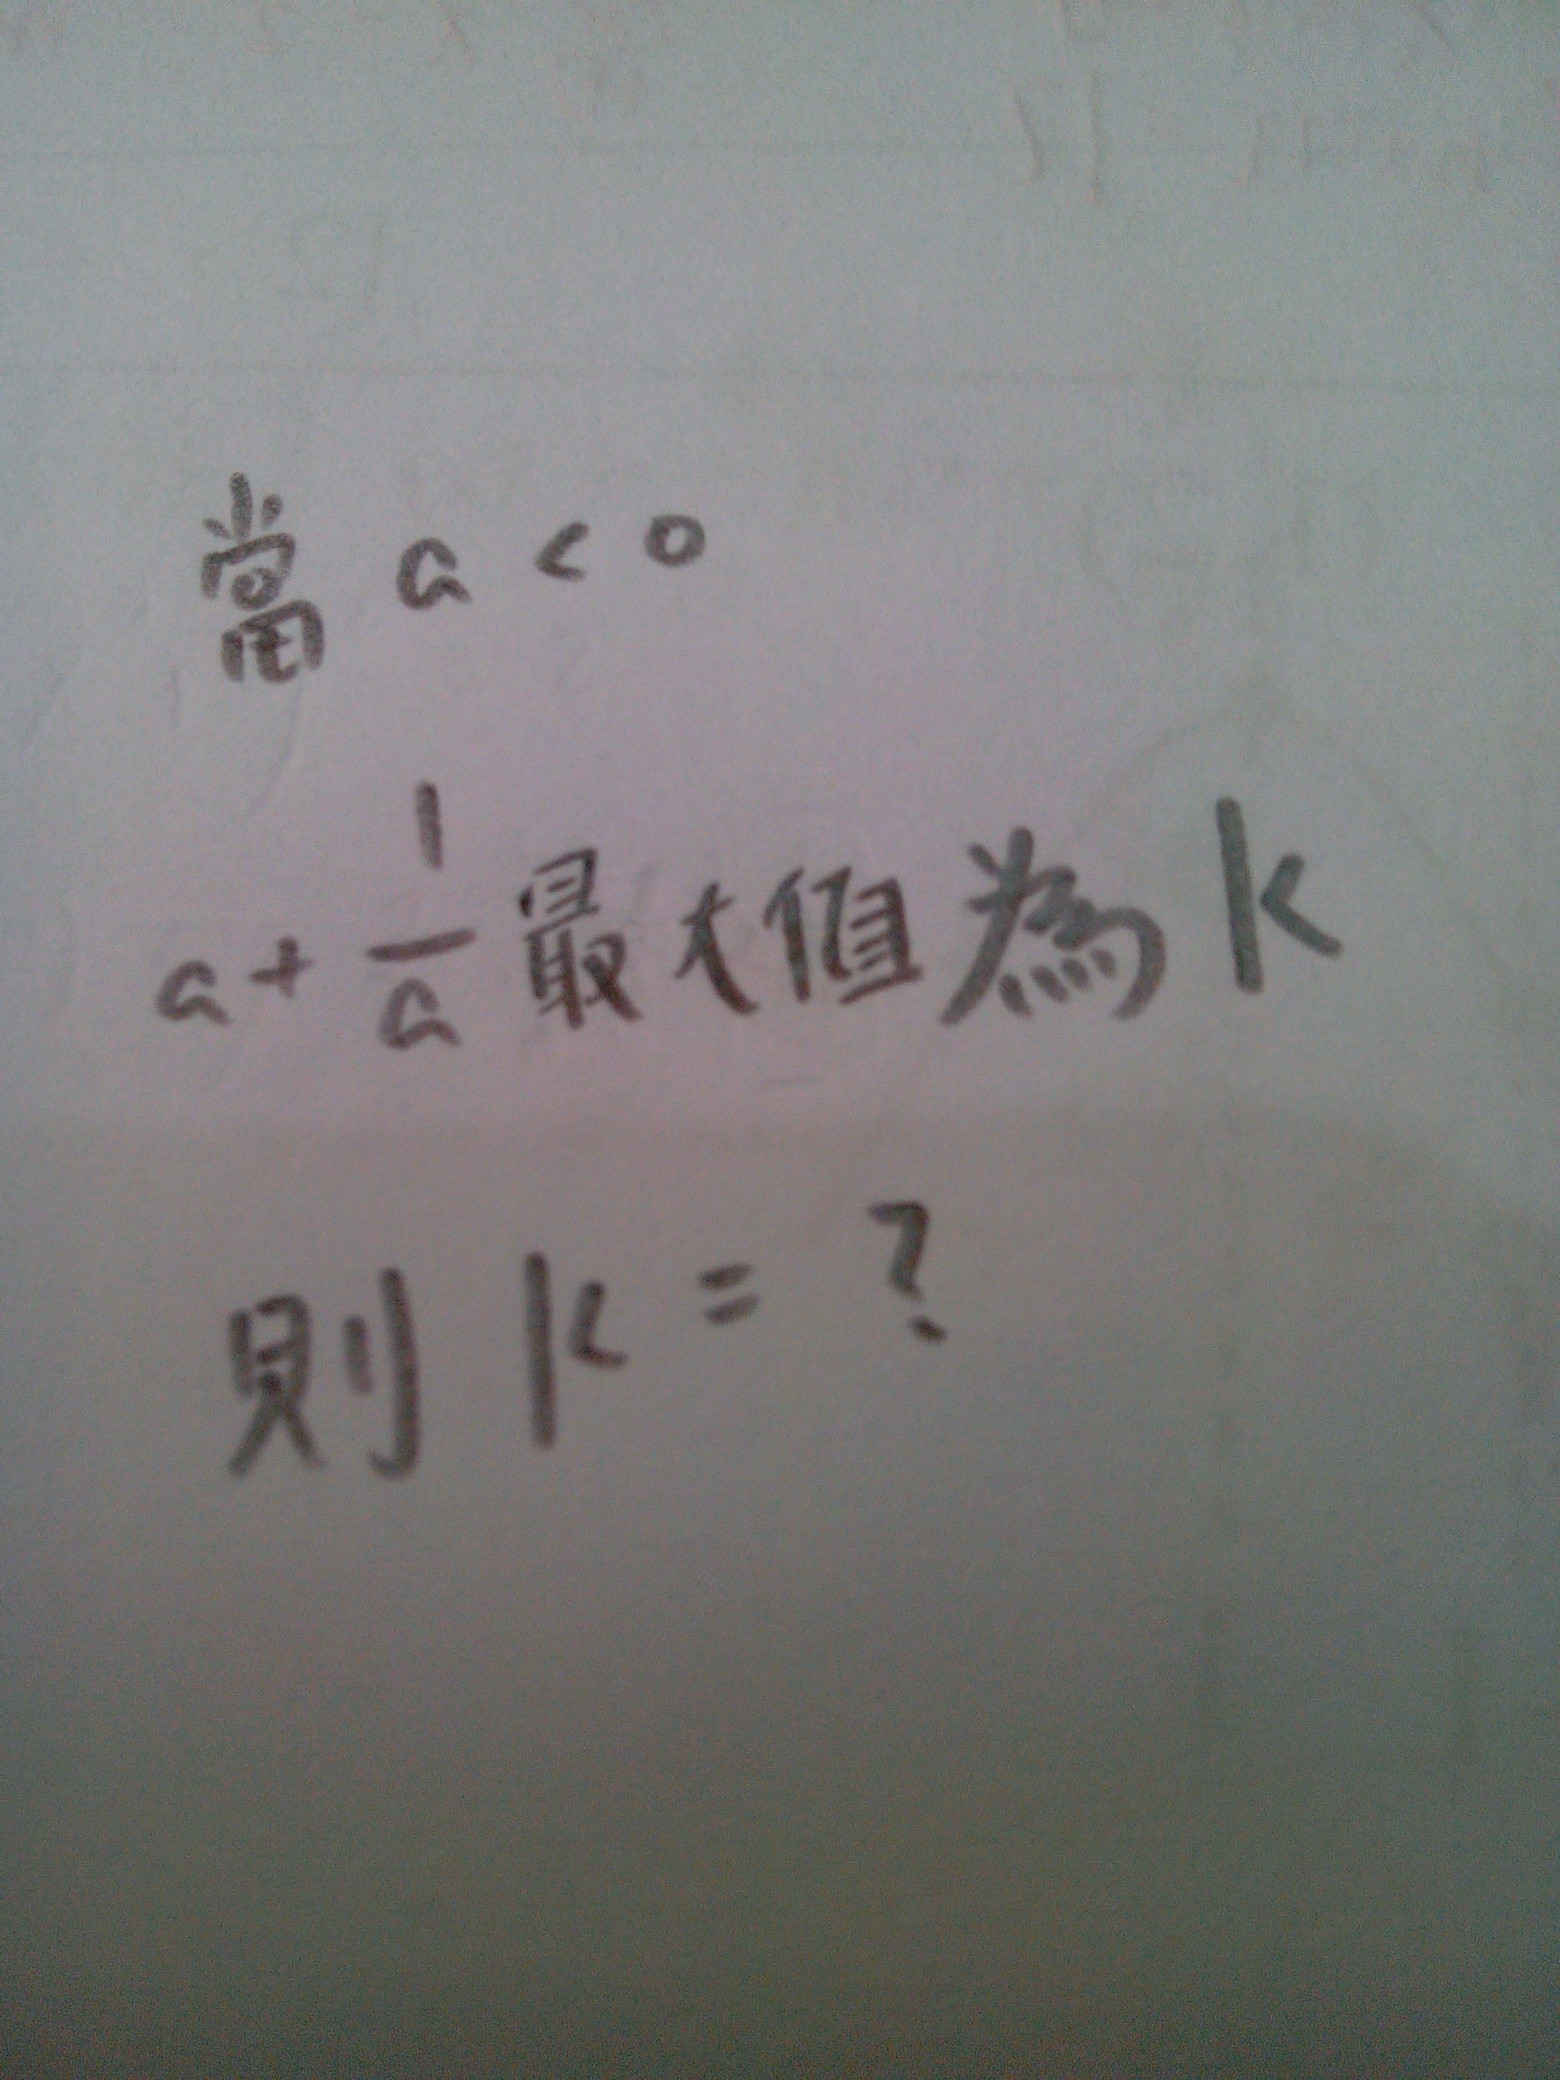 當 a < 0
a + 1/a 最大值為 k
則 k = ?